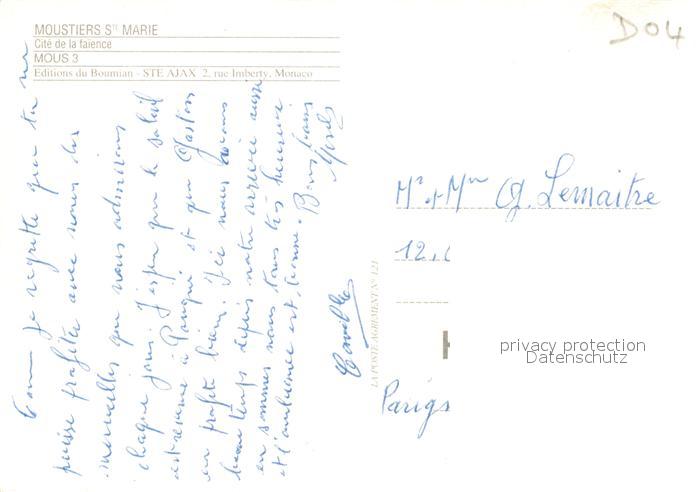 D04
MOUSTIERS Sᵗᵉ MARIE
Cité de la faïence
MOUS 3
Editions du Boumian - STE AJAX 2, rue Imberty, Monaco
je regrette que tu ne
puisse profiter avec nous des
merveilles que nous admirons
chaque jour. J'espère que le soleil
est revenu à et que Gaston
en profite bien. Ici nous avons
beau temps depuis notre arrivée aussi
en sommes nous tous très heureux
et l'ambiance est bonne. Bons baisers
Camille
LA POSTE AGREMENT N° 121
Mʳ et Mᵐᵉ G. Lemaitre
12,
Parign
privacy protection
Datenschutz